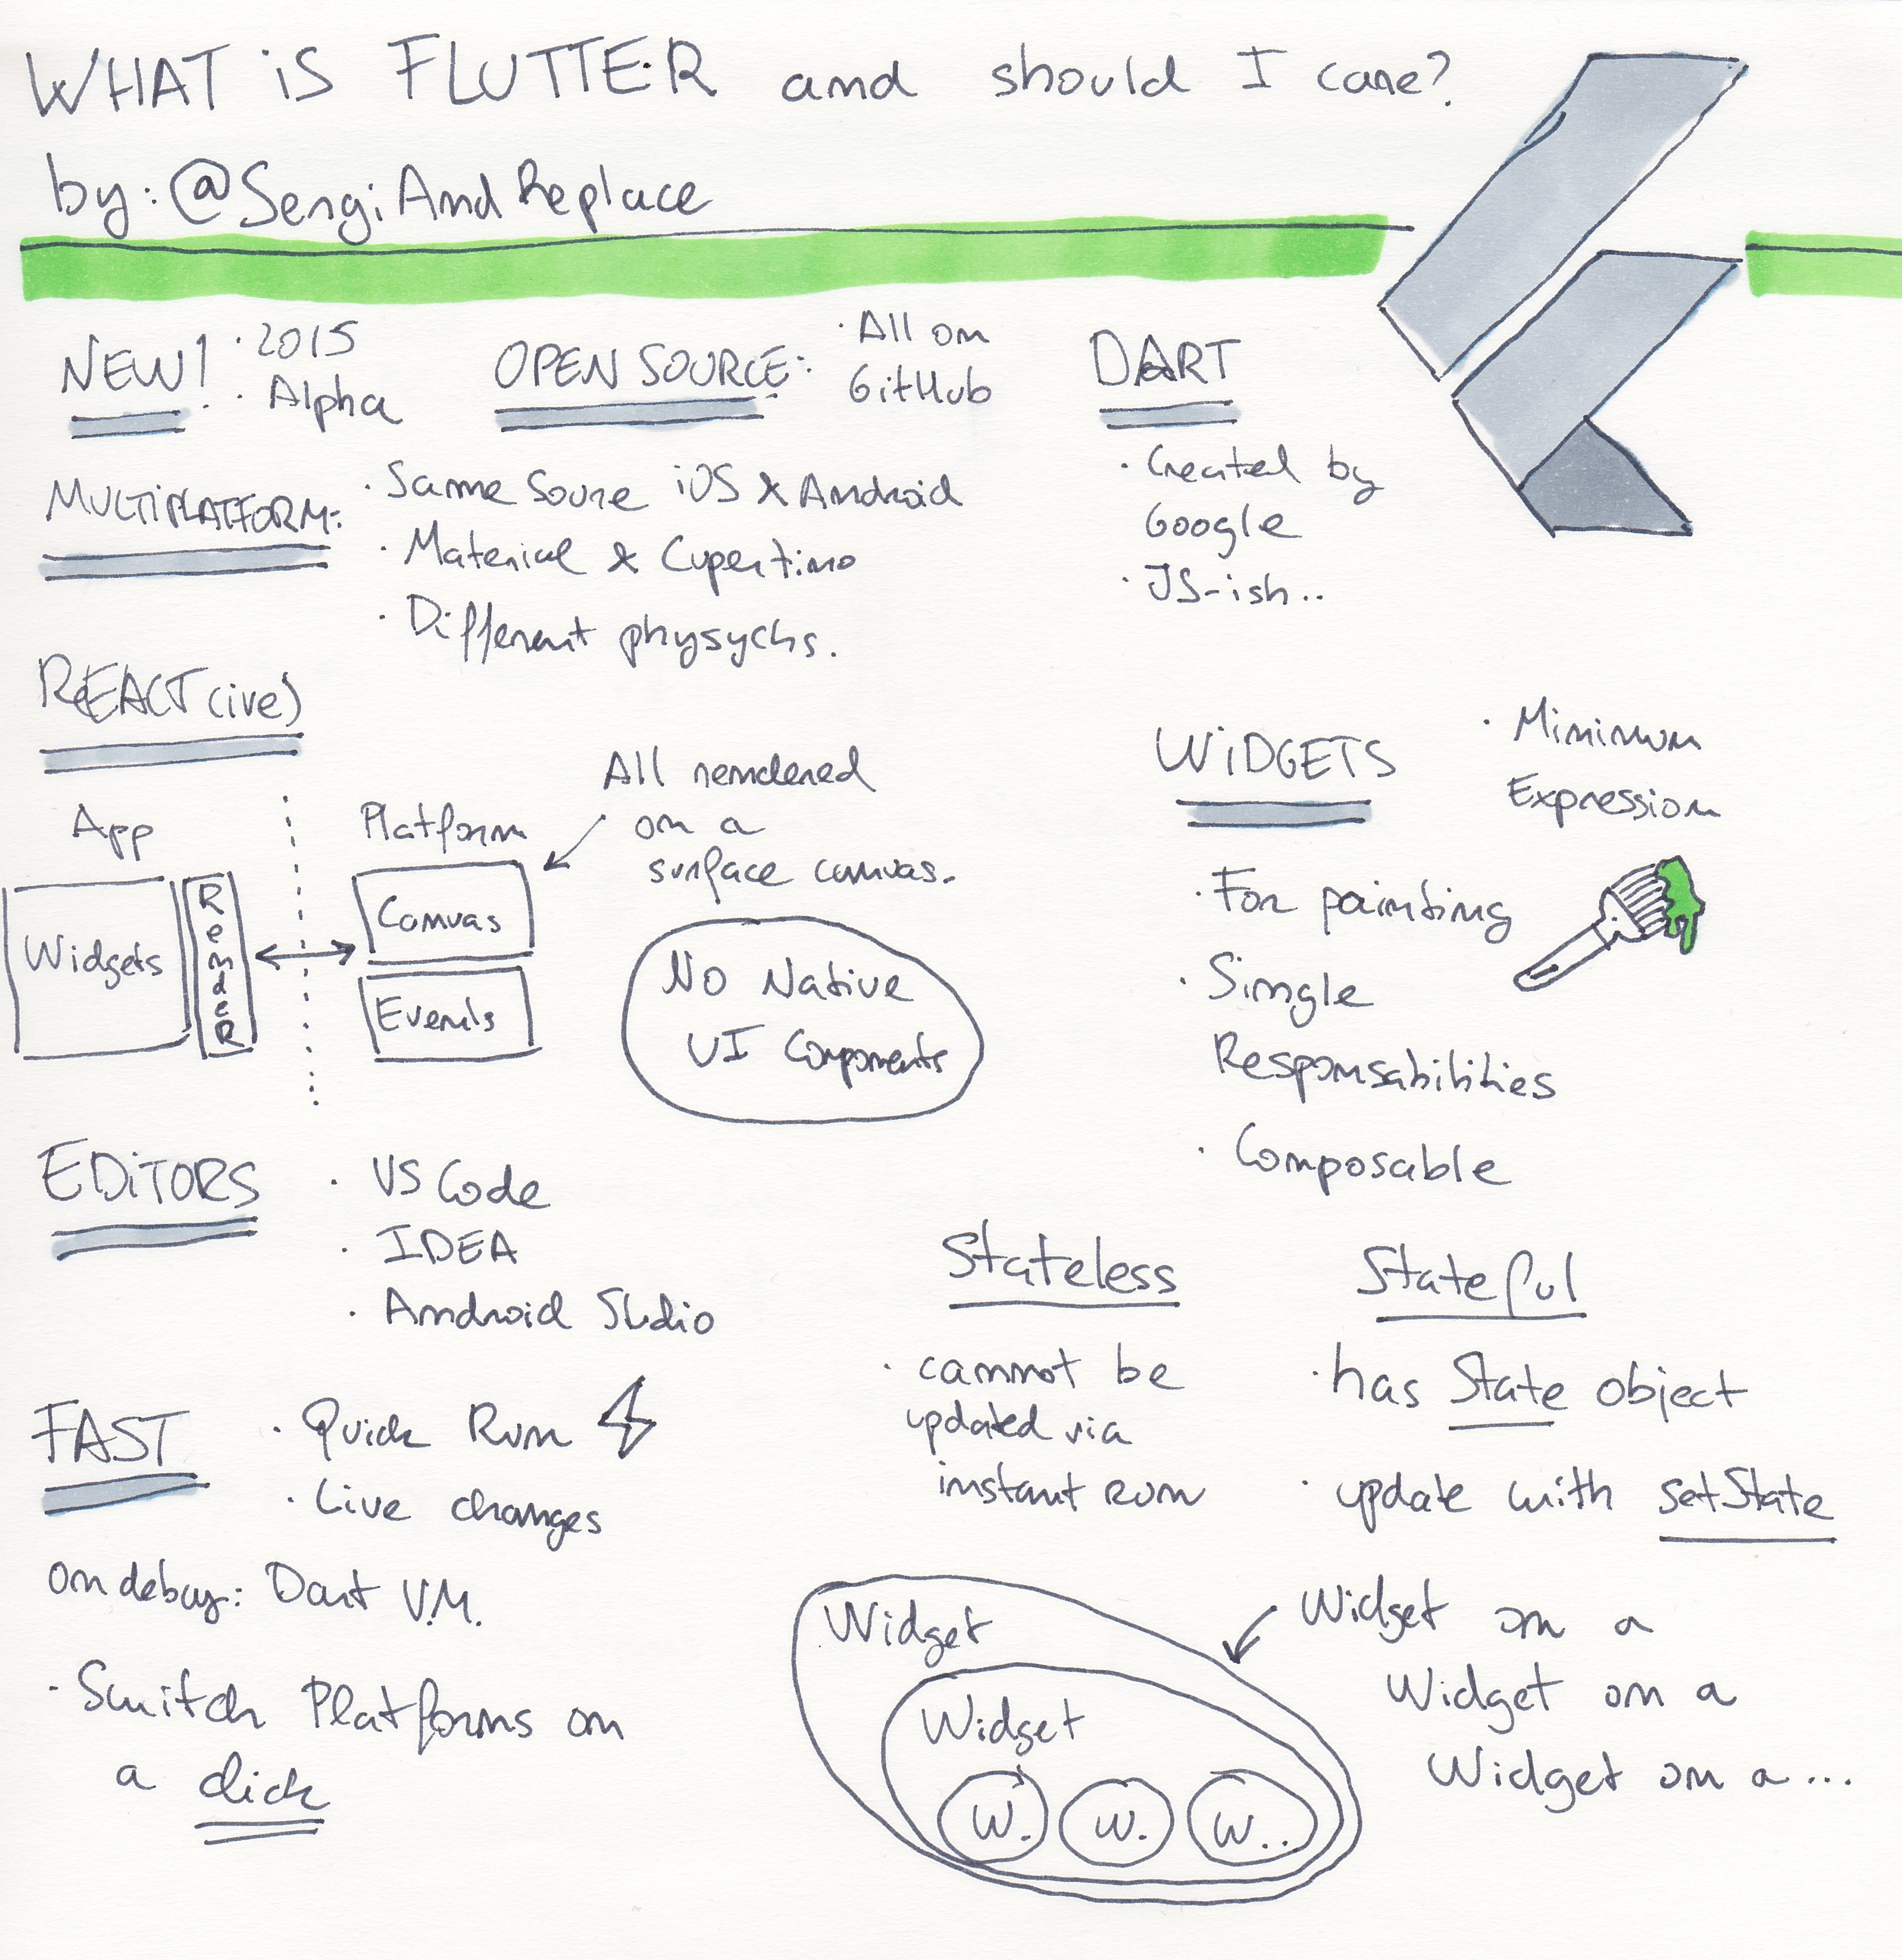 WHAT iS FLUTTER and should I care?
by: @SergiAndReplace
NEW!
· 2015
· Alpha
OPEN SOURCE:
· All on
GitHub
DART
· Created by
Google
· JS-ish..
MULTiPLATFORM:
· Same Soure iOS & Android
· Material & Cupertino
· Different physychs.
REACT(ive)
App
Widgets
RendeR
Platform
Canvas
Events
All rendered
on a
surface canvas.
No Native
UI Components
WiDGETS
· Minimum
Expression
· For painting
· Single
Responsabilities
· Composable
EDiTORS
· VS Code
· IDEA
· Android Studio
Stateless
· cannot be
updated via
instant run
Stateful
· has State object
· update with setState
FAST
· Quick Run
· Live changes
on debug: Dart V.M.
· Switch Platforms on
a click
Widget
Widget
W.
W.
W..
Widget on a
Widget on a
Widget on a ...